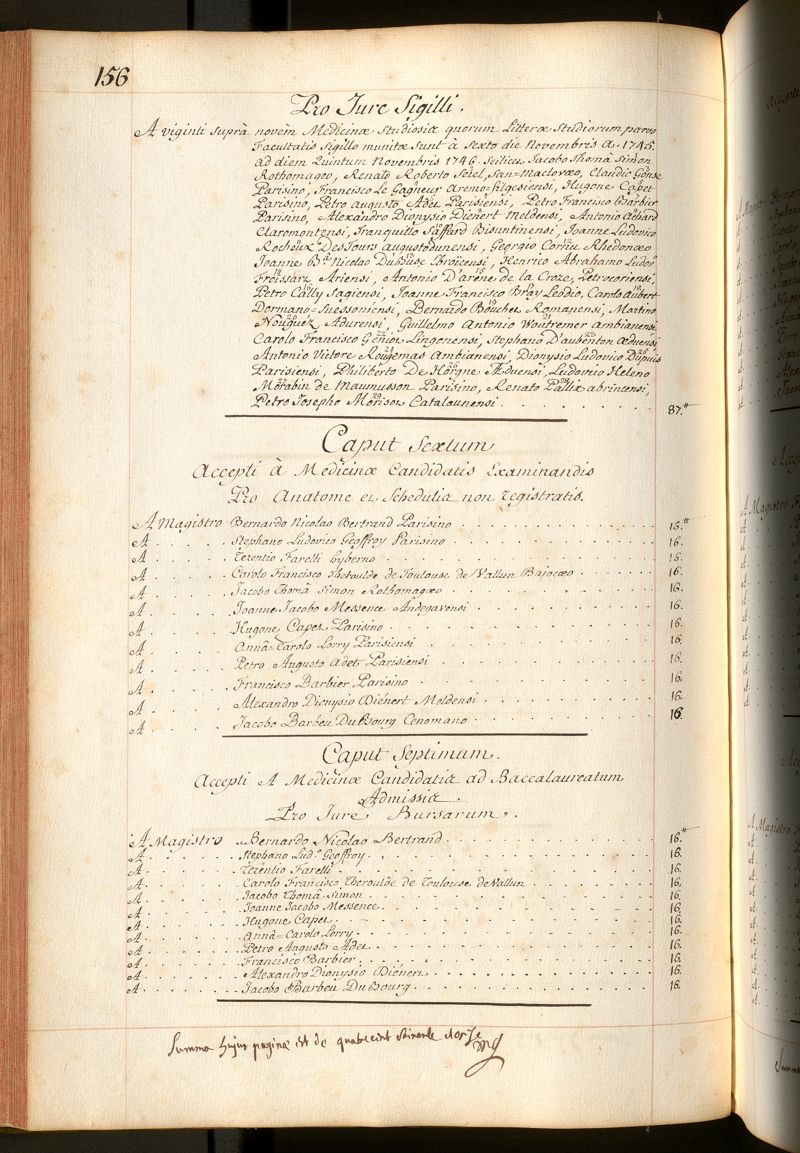 156
Pro Jure Sigilli.
A viginti suprà novem Medicinæ Studiosis quorum Litteræ Studiorum parvo
Facultatis Sigillo munitæ sunt à Sexto die Novembris a. 1745.
ad diem Quintum Novembris 1746. Scilicet Jacobo Thomâ Simon
Rothomagæo, Renato Roberto Seiel, San=maclovæo, Claudio
Parisino, Francisco Le Gagneur Hugone Capet
Parisino, Petro augusto Adet Parisiensi, Petro Francisco Barbier
Parisino, Alexandro Dionysio Diénert Meldensi, Antonio Achard
Claromontensi, Tranquillo Saffard Bisuntinensi, Joanne Ludovico
DesJours augustodunensi, Georgio Cornue Rhedonæo
Joanne B.ª Nicolao DuBusc Ebroicensi, Henrico Abrahamo Ludo.
Froissart Ariensi, Antonio D'arène de la Croze, Petrocoriensi,
Petro Cally Sagiensi, Joanne Francisco Bray Leodio, Carolo Aubert
Dormano=Suessoniensi, Bernardo Bouchet Romanensi, Martino
Nouguéz Adurensi, Guillelmo Antonio Woutremer ambianensi
Carolo Francisco Génion Lingonensi, Stephano D'aubenton æduensi
Antonio Victore Rougemas Ambianensi, Dionysio Ludovico Dupuis
Parisiensi, Philiberto De Horgne Æduensi, Ludovico Heleno
Morabin de Maumusson Parisino, Renato Pallix abrincensi,
Petro Josepho Morisot Catalaunensi . . . . . . . . 87.
Caput Sextum
Accepti à Medicinæ Candidatis Examinandis
Pro Anatome et Schedulis non registratis.
A Magistro Bernardo Nicolao Bertrand Parisino . . . . . 16.
A . . . . Stephano Ludovico Geoffroy Parisino . . . . . 16.
A . . . . Terentio Farelli hyberno . . . . . 16.
A . . . . Carolo Francisco Theroulde de Toulouse de Vallun Bajocæo . . . . . 16.
A . . . . Jacobo Thomâ Simon Rothomagæo . . . . . 16.
A . . . . Joanne Jacobo Messence Andegavensi . . . . . 16.
A . . . . Hugone Capet Parisino . . . . . 16.
A . . . . Annâ=Carolo Lorry Parisiensi . . . . . 16.
A . . . . Petro Augusto Adet Parisiensi . . . . . 16.
A . . . . Francisco Barbier Parisino . . . . . 16.
A . . . . Alexandro Dionysio Diénert Meldensi . . . . . 16.
A . . . . Jacobo Barbeu DuBourg Cenomano . . . . . 16.
Caput Septimum.
Accepti A Medicinæ Candidatis ad Baccalaureatum
Admissis.
Pro Jure Bursarum.
A Magistro Bernardo Nicolao Bertrand . . . . . 16.
A . . . . Stephano Lud.º Geoffroy . . . . . 16.
A . . . . Terentio Farelli . . . . . 16.
A . . . . Carolo Francisco Theroulde de Toulouse de Vallun . . . . . 16.
A . . . . Jacobo Thomâ Simon . . . . . 16.
A . . . . Joanne Jacobo Messence . . . . . 16.
A . . . . Hugone Capet . . . . . 16.
A . . . . Annâ=Carolo Lorry . . . . . 16.
A . . . . Petro Augusto Adet . . . . . 16.
A . . . . Francisco Barbier . . . . . 16.
A . . . . Alexandro Dionysio Diénert . . . . . 16.
A . . . . Jacobo Barbeu DuBourg . . . . . 16.
Summa hujus paginæ est de quatre cent